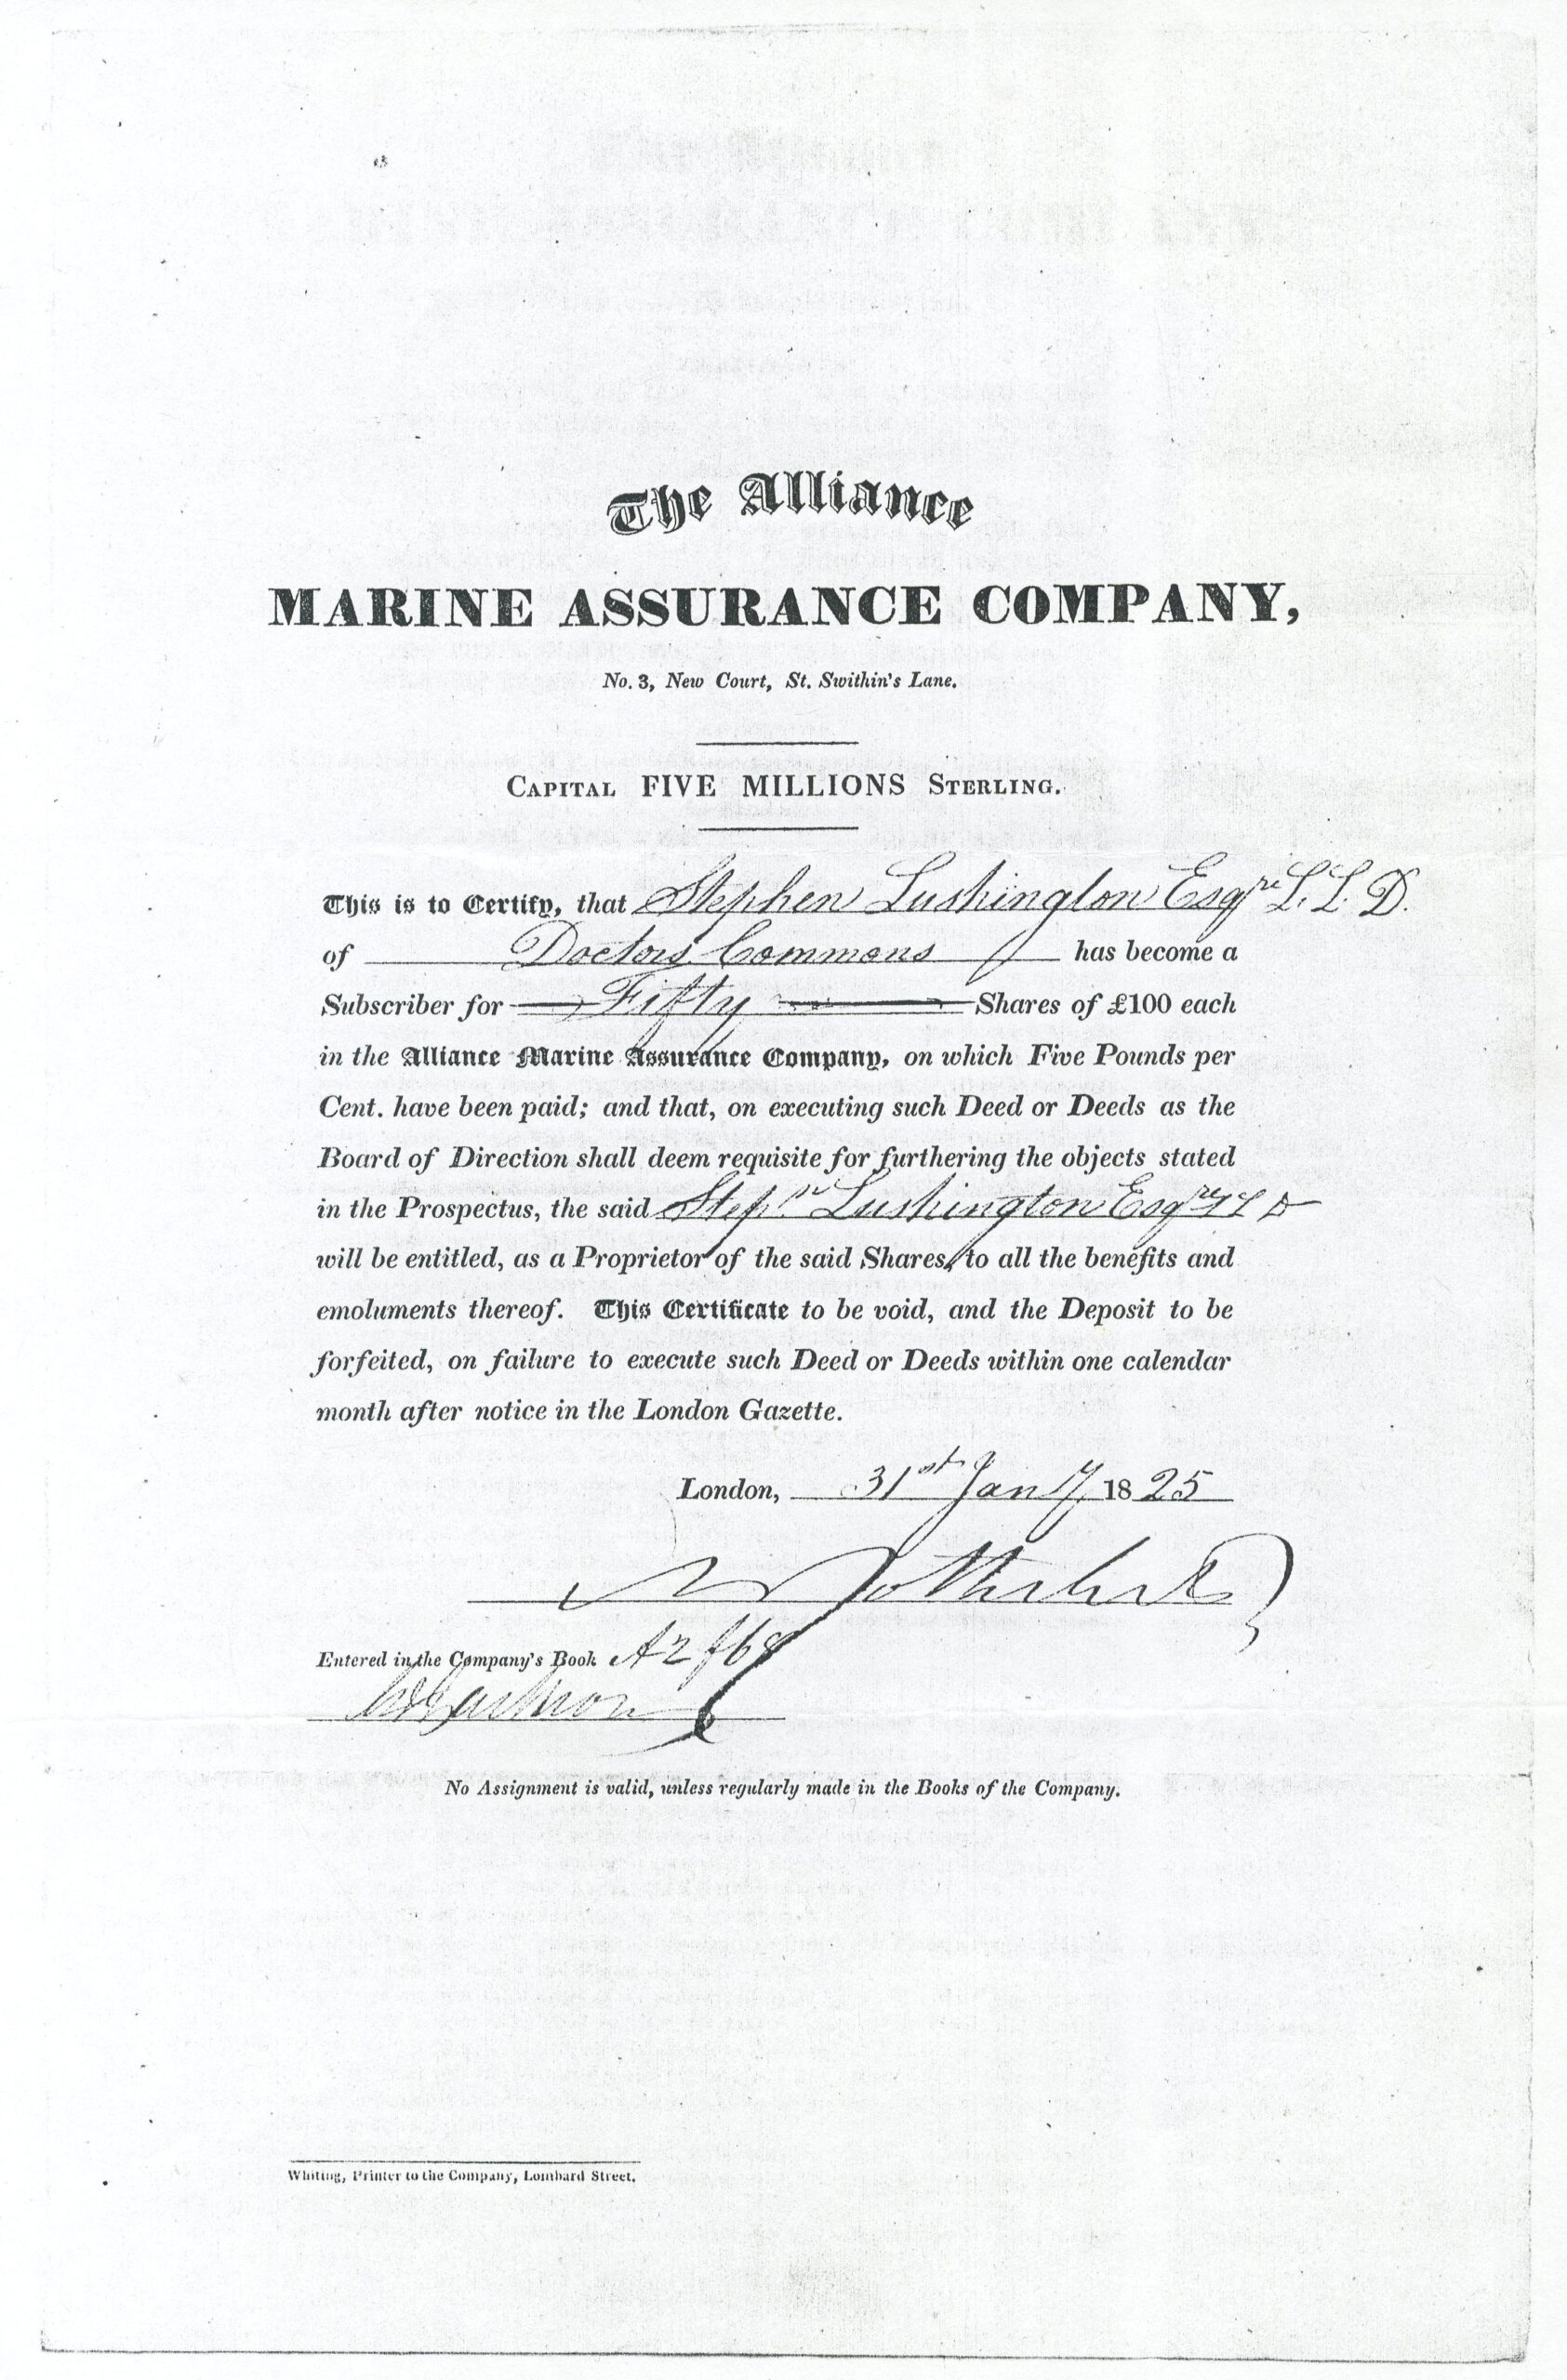 The Alliance
MARINE ASSURANCE COMPANY,
No. 3, New Court, St. Swithin's Lane.
CAPITAL FIVE MILLIONS STERLING.
This is to Certify, that Stephen Lushington Esqre L. L. D.
of Doctors Commons has become a
Subscriber for Fifty Shares of £100 each
in the Alliance Marine Assurance Company, on which Five Pounds per
Cent. have been paid; and that, on executing such Deed or Deeds as the
Board of Direction shall deem requisite for furthering the objects stated
in the Prospectus, the said Stepn Lushington Esqre LLD
will be entitled, as a Proprietor of the said Shares, to all the benefits and
emoluments thereof. This Certificate to be void, and the Deposit to be
forfeited, on failure to execute such Deed or Deeds within one calendar
month after notice in the London Gazette.
London, 31st Jany 1825
Entered in the Company's Book A2 f68
No Assignment is valid, unless regularly made in the Books of the Company.
Whiting, Printer to the Company, Lombard Street.